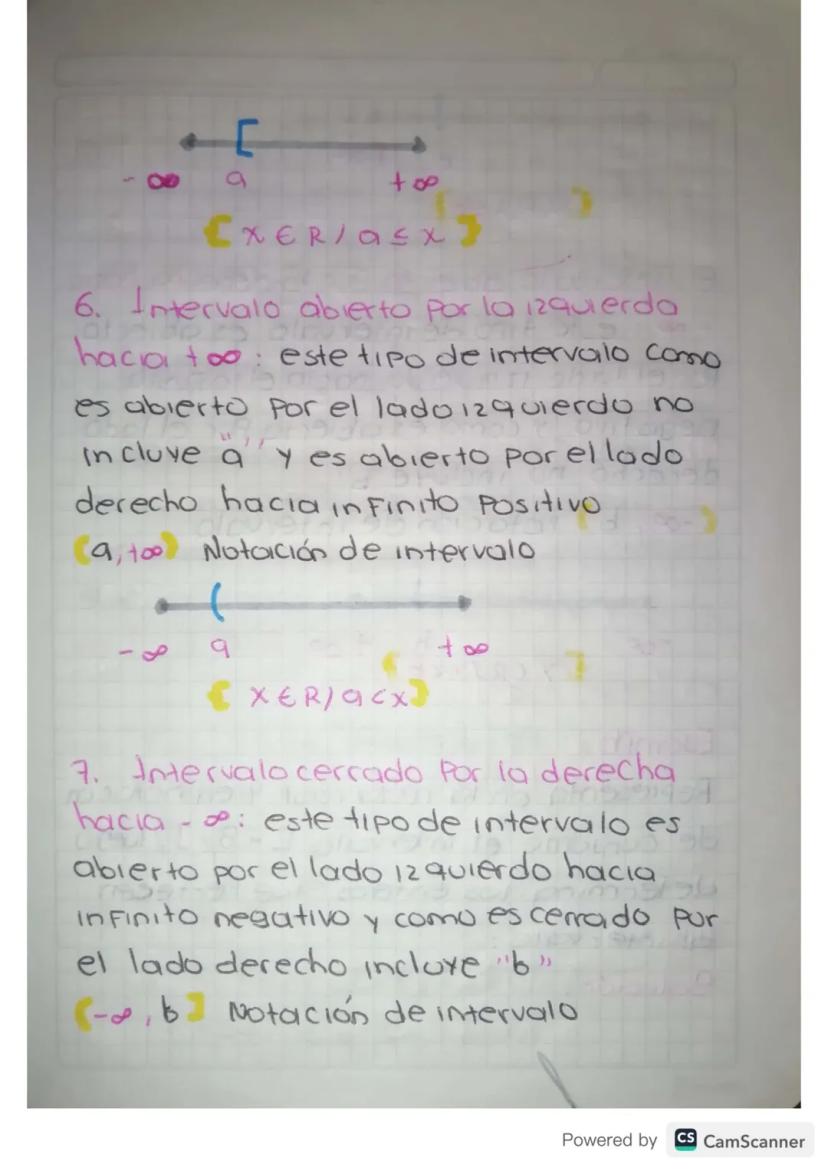 [
- ∞ a + ∞
{ x ∈ R / a ≤ x }
6. Intervalo abierto por la izquierda
hacia + ∞ : este tipo de intervalo como
es abierto por el lado izquierdo no
incluye "a" y es abierto por el lado
derecho hacia infinito positivo
(a, +∞) Notación de intervalo
(
- ∞ a + ∞
{ x ∈ R / a < x }
7. Intervalo cerrado por la derecha
hacia - ∞ : este tipo de intervalo es
abierto por el lado izquierdo hacia
infinito negativo y como es cerrado por
el lado derecho incluye "b"
(-∞, b] Notación de intervalo
Powered by CS CamScanner